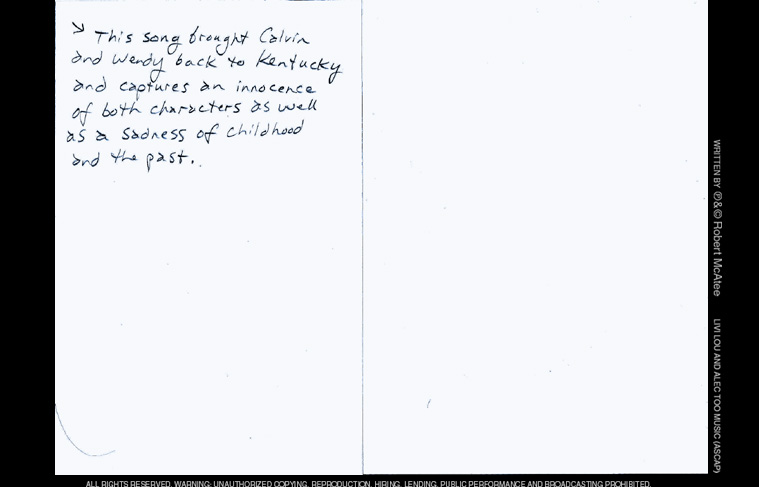 This song brought Calvin
and Wendy back to Kentucky
and captures an innocence
of both characters as well
as a sadness of childhood
and the past.
WRITTEN BY ℗&© Robert McAtee
LIVI LOU AND ALEC TOO MUSIC (ASCAP)
ALL RIGHTS RESERVED. WARNING: UNAUTHORIZED COPYING, REPRODUCTION, HIRING, LENDING, PUBLIC PERFORMANCE AND BROADCASTING PROHIBITED.